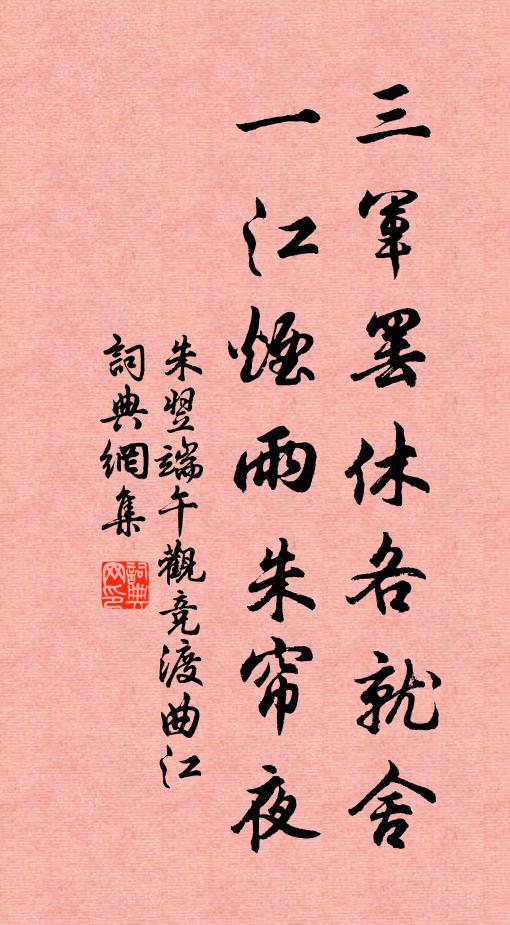 三軍罷休各就舍
一江煙雨朱帘夜
朱翌端午觀竞渡曲江
詞典網集
詞典
网印